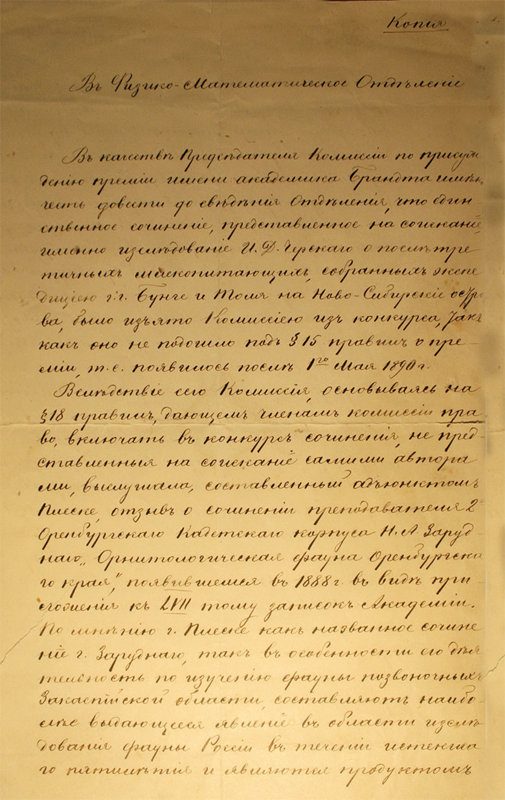 Копія
Въ Физико-Математическое Отдѣленіе
Въ качествѣ Предсѣдателя Комиссіи по присуж
денію преміи имени академика Брандта имѣю
честь довести до свѣдѣнія Отдѣленія, что един
ственное сочиненіе, представленное на соисканіе,
именно изслѣдованіе И. Д. Черскаго о послѣтре
тичныхъ млекопитающихъ, собранныхъ экспе
диціею г.г. Бунге и Толя на Ново-Сибирскіе остро
ва, было изъято Комиссіею изъ конкурса, такъ
какъ оно не подошло подъ § 15 правилъ о пре
міи, т. е. появилось послѣ 1го Мая 1890 г.
Вслѣдствіе сего Комиссія, основываясь на
§ 18 правилъ, дающемъ членамъ комиссіи пра
во, включать въ конкурсъ сочиненія, не пред-
ставленныя на соисканіе самими автора
ми, выслушала, составленный адъюнктомъ
Плеске, отзывъ о сочиненіи преподавателя 2
Оренбургскаго Кадетскаго корпуса Н. А. Заруд-
наго „Орнитологическая фауна Оренбургска
го края", появившемся въ 1888 г. въ видѣ при-
ложенія къ LVII тому записокъ Академіи.
По мнѣнію г. Плеске какъ названное сочине
ніе г. Заруднаго, такъ въ особенности его дѣя
тельность по изученію фауны позвоночныхъ
Закаспійской области, составляютъ наибо-
лѣе выдающееся явленіе въ области изслѣ
дованія фауны Россіи въ теченіи истекша
го пятилѣтія и являются продуктомъ